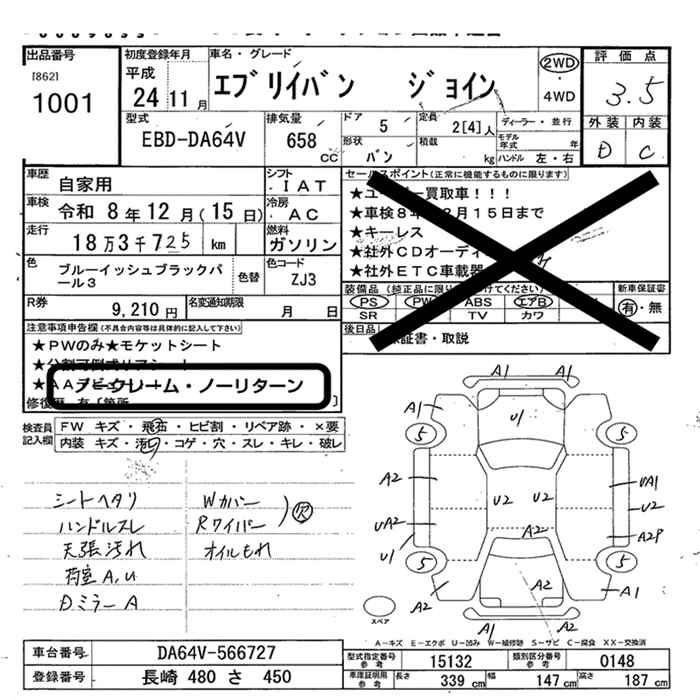 出品番号
[862]
1001
初度登録年月
平成
24 11 月
車名・グレード
エブリイバン ジョイン
2WD
・
4WD
評価点
3.5
外装 内装
D C
型式
EBD-DA64V
排気量
658
cc
ドア
5
定員
2[4]人
ディーラー・並行
形状
バン
積載
kg
モデル年式
年
ハンドル 左・右
車歴
自家用
シフト
IAT
車検
令和 8年12月(15日)
冷房
AC
走行
18万3千725 km
燃料
ガソリン
色
ブルーイッシュブラックパール3
色替
色コード
ZJ3
R券
9,210円
名変通知期限
月 日
セールスポイント(正常に機能するものに限ります)
★車検8年 月15日まで
★キーレス
★社外CDオーディ
★社外ETC車載器
装備品
PS PW ABS エアB
SR TV カワ
新車保証書
有・無
後日品
保証書・取説
注意事項申告欄(不具合内容等は具体的に記入して下さい)
★PWのみ★モケットシート
ノークレーム・ノーリターン
検査員記入欄
FW キズ・飛石・ヒビ割・リペア跡・×要
内装 キズ・汚れ・コゲ・穴・スレ・キレ・破レ
シートヘタリ
ハンドルスレ
天張汚れ
荷室A,U
Dミラー A
Wカバー
Rワイパー
欠
オイルもれ
A1 A1
A1
U1
5 5
A2
UA1
U2 U2
U2
UA2
A2
A2P
U1
5 5
A2
A2
A1
A1
A2
スペア
A-キズ E-エクボ U-凹み W-補修跡 S-サビ C-腐食 XX-交換済
車台番号
DA64V-566727
登録番号
長崎 480 さ 450
型式指定番号
参考
15132
類別区分番号
参考
0148
車庫証明用
参考
長さ 339 cm 幅 147 cm 高さ 187 cm